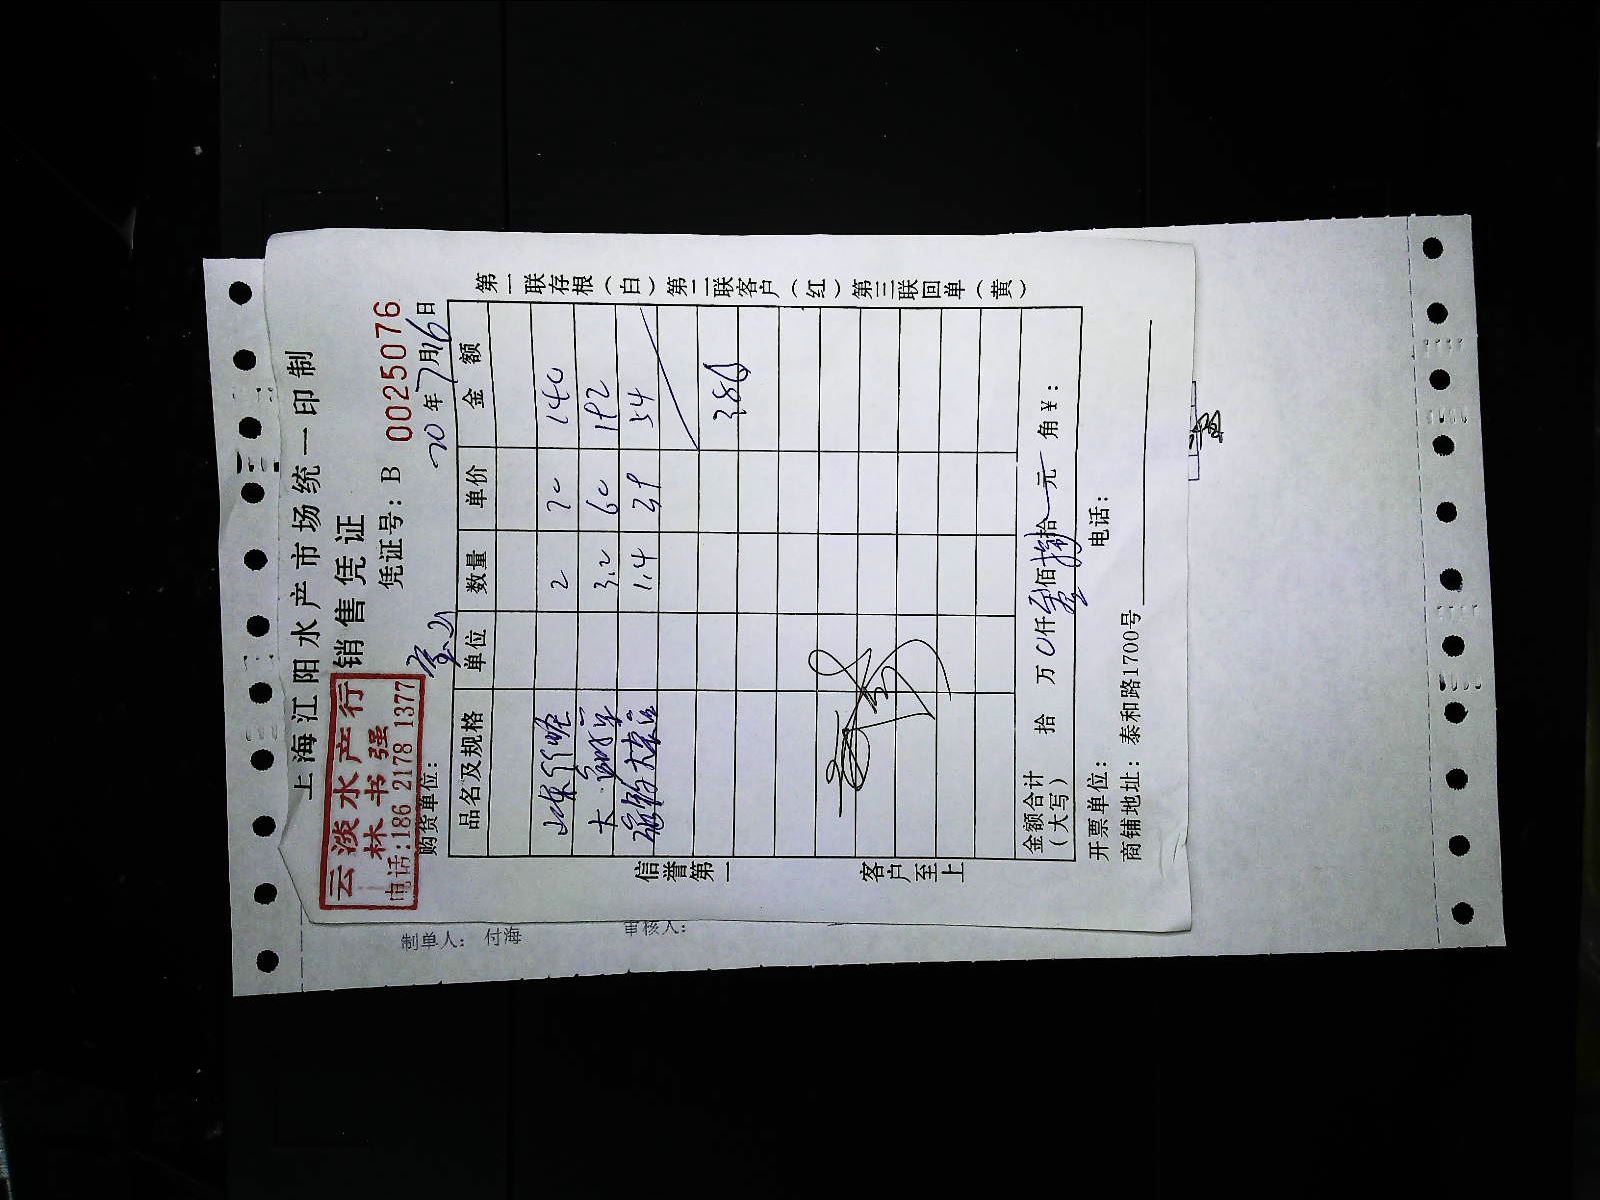 上海江阳水产市场统一印制
销售凭证
云淡水产行
林书强
电话:186 2178 1377
凭证号: B 0025076
购货单位:
20年7月16日
品名及规格 单位 数量 单价 金额
2 70 140
大 3.2 60 192
1.4 39 54
386
金额合计(大写) 拾 万 仟 叁佰 捌拾 元 角 ¥:
开票单位: 电话:
商铺地址: 泰和路1700号
信誉第一 客户至上
第一联存根(白) 第二联客户(红) 第三联回单(黄)
制单人: 付海 审核人: